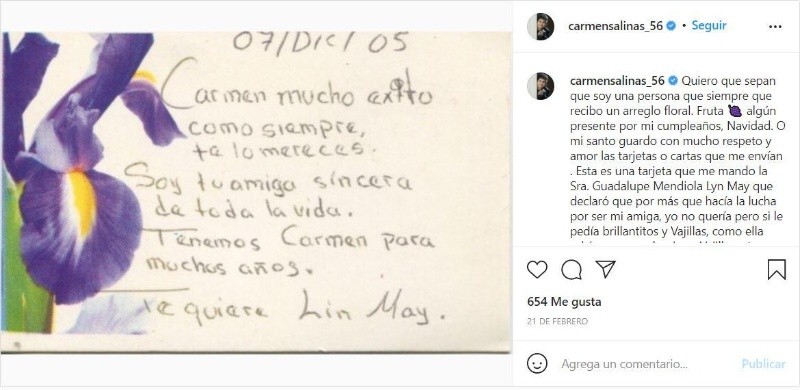 07/Dic/05
Carmen mucho exito
como siempre,
te lo mereces.
Soy tu amiga sincera
de toda la vida.
Tenemos Carmen para
muchos años.
Te quiere Lin May.
carmensalinas_56 • Seguir
carmensalinas_56 Quiero que sepan
que soy una persona que siempre que
recibo un arreglo floral. Fruta 🍇 algún
presente por mi cumpleaños, Navidad. O
mi santo guardo con mucho respeto y
amor las tarjetas o cartas que me envían
. Esta es una tarjeta que me mando la
Sra. Guadalupe Mendiola Lyn May que
declaró que por más que hacía la lucha
por ser mi amiga, yo no quería pero si le
pedía brillantitos y Vajillas, como ella
654 Me gusta
21 DE FEBRERO
Agrega un comentario...
Publicar